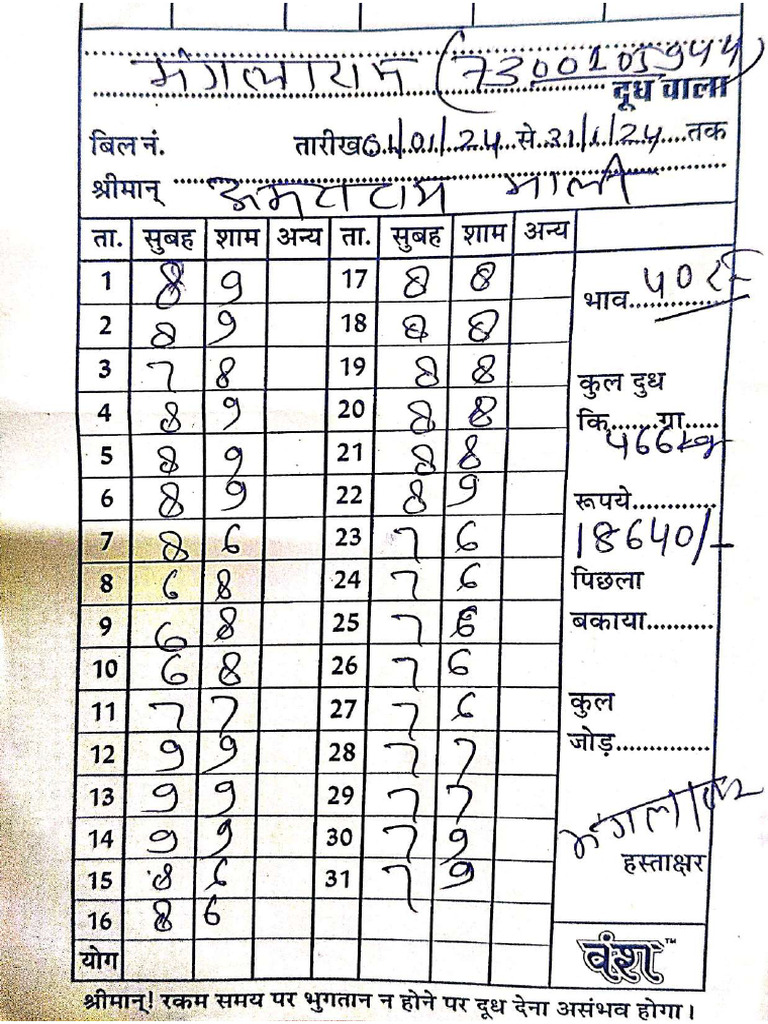 मंगलाराम (7300105944)
दूध वाला
बिल नं. तारीख 01/01/24 से 31/1/24 तक
श्रीमान् माली
ता. सुबह शाम अन्य ता. सुबह शाम अन्य
1 8 9 17 8 8
भाव 40
2 8 9 18 8 8
3 7 8 19 8 8
कुल दुध
4 8 9 20 8 8
कि. ग्रा.
466kg
5 8 9 21 8 8
6 8 9 22 8 9
रूपये
7 8 6 23 7 6
18640/-
8 6 8 24 7 6
पिछला
9 6 8 25 7 6
बकाया
10 6 8 26 7 6
11 7 7 27 7 6
कुल
12 9 9 28 7 7
जोड़
13 9 9 29 7 7
14 9 9 30 7 9
मंगलाराम
हस्ताक्षर
15 8 6 31 7 9
16 8 6
योग
वंश™
श्रीमान्! रकम समय पर भुगतान न होने पर दूध देना असंभव होगा।